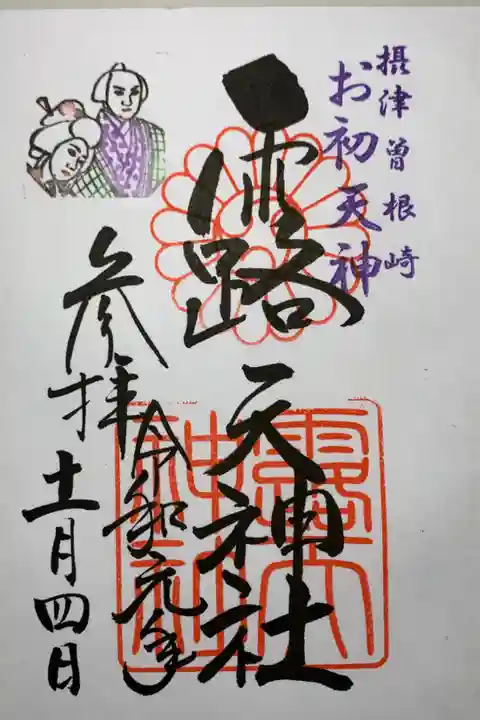 摂津曽根崎
お初天神
露
天神社
令和元年
参拝
十一月四日
露天
神社